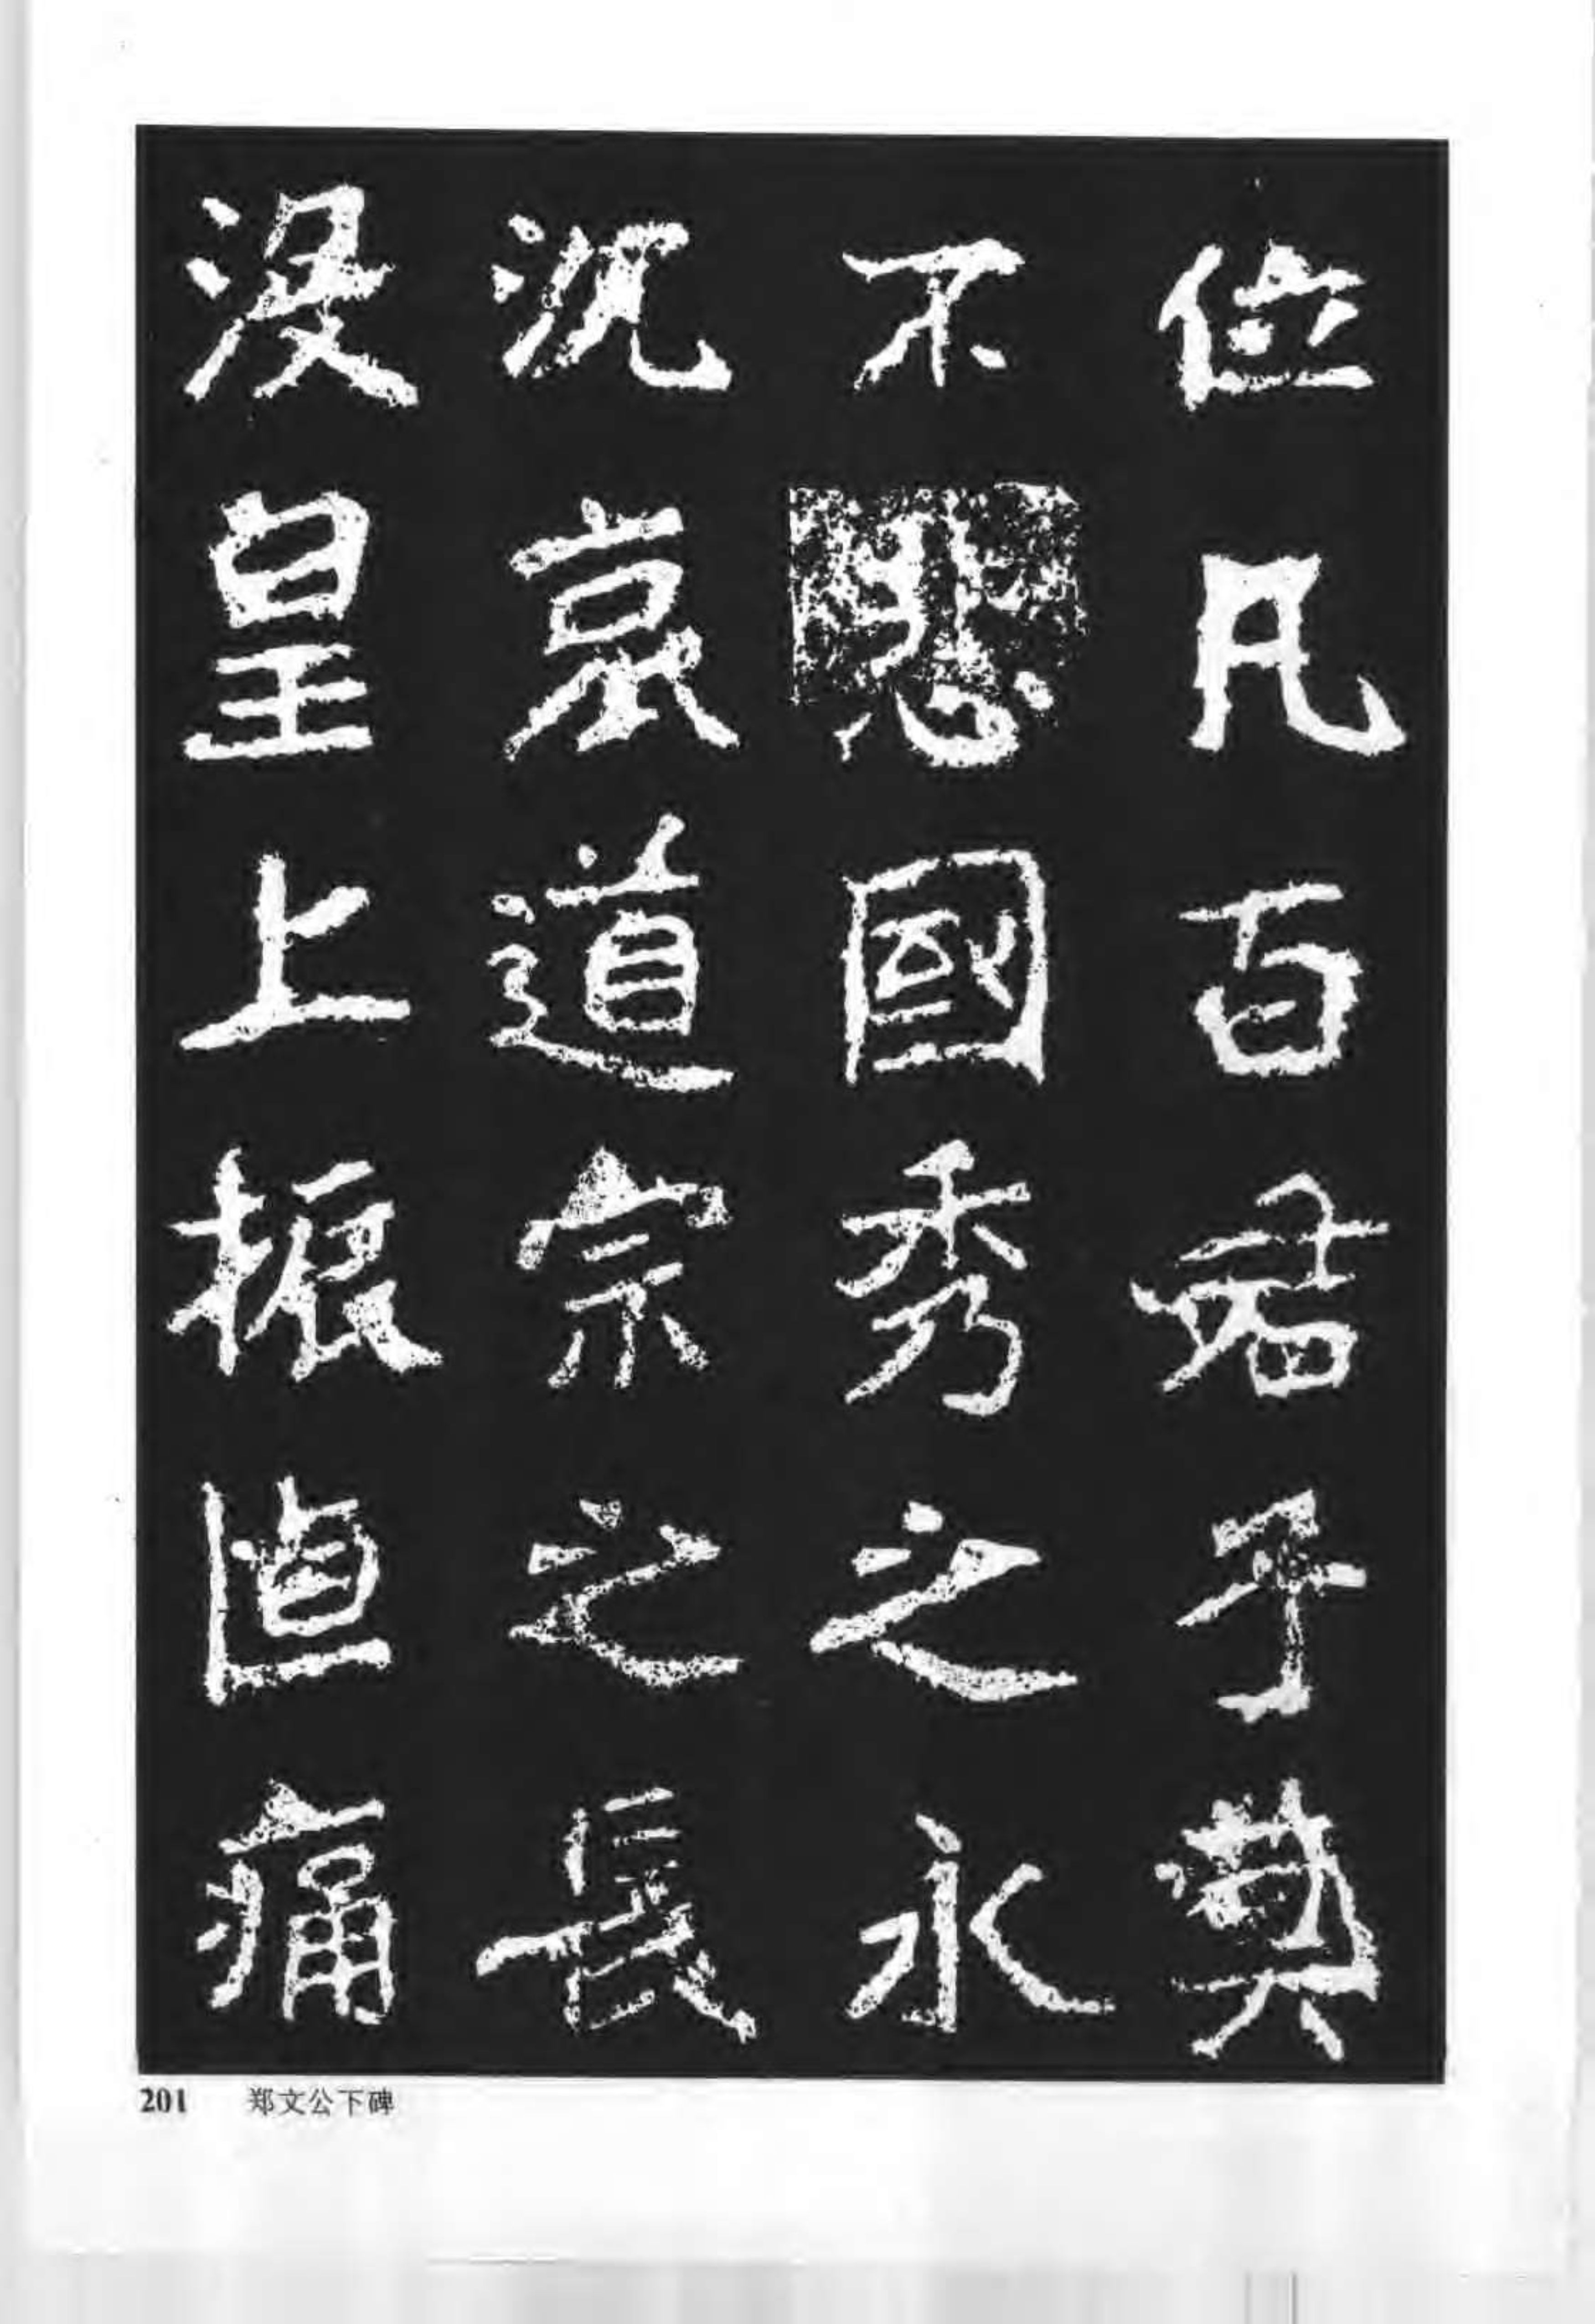 位凡百君子莫
不悲國秀之永
沉哀道宗之長
沒皇上振悼痛
201 郑文公下碑